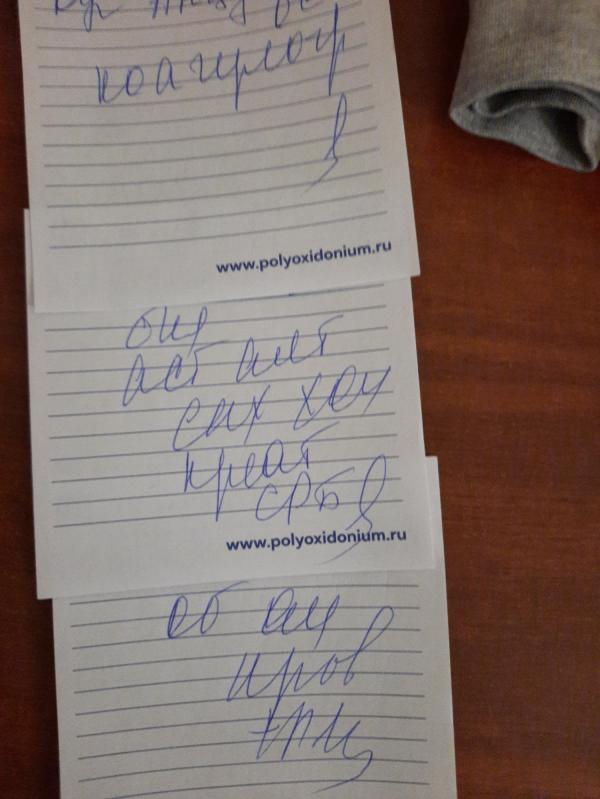 коагулогр
www.polyoxidonium.ru
бил
аст алт
сах хол
креат
СРБ
www.polyoxidonium.ru
об ан
кров
+рц